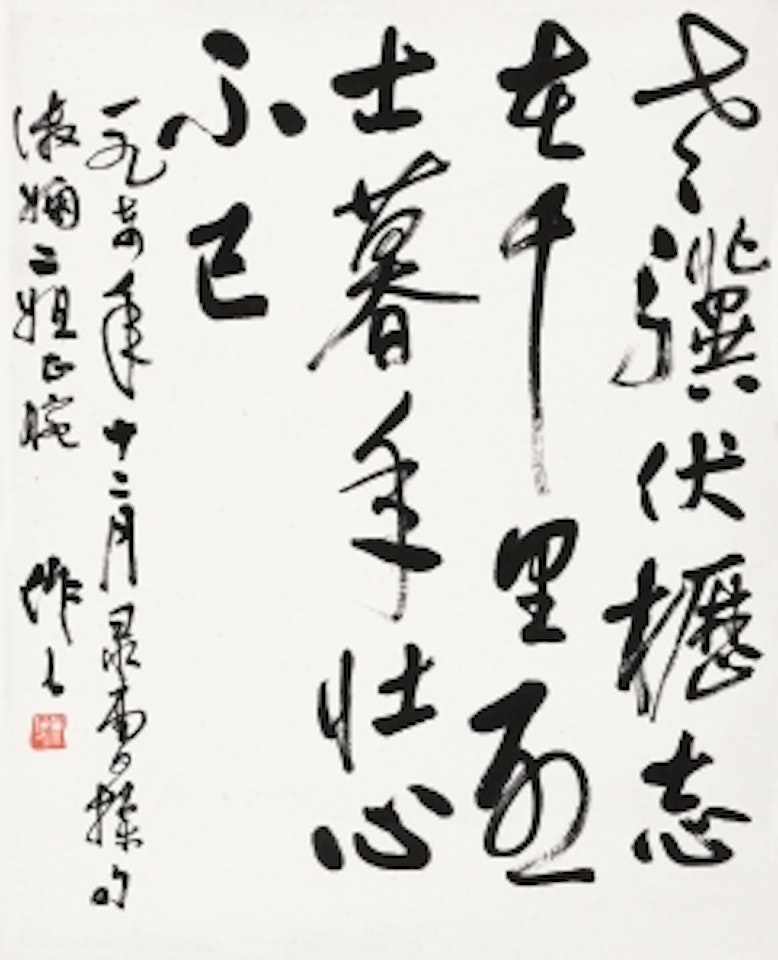 老骥伏櫪志
在千里烈
士暮年壮心
不已
一九七年十二月录曹操句
淑娴二姐正腕 作人